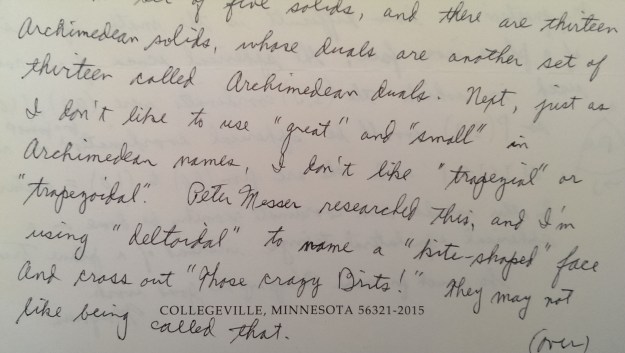 set of five solids, and there are thirteen
Archimedean solids, whose duals are another set of
thirteen called Archimedean duals. Next, just as
I don't like to use "great" and "small" in
Archimedean names, I don't like "trapezial" or
"trapezoidal". Peter Messer researched this, and I'm
using "deltoidal" to name a "kite-shaped" face
And cross out "Those crazy Brits!" They may not
like being called that.
COLLEGEVILLE, MINNESOTA 56321-2015
(over)